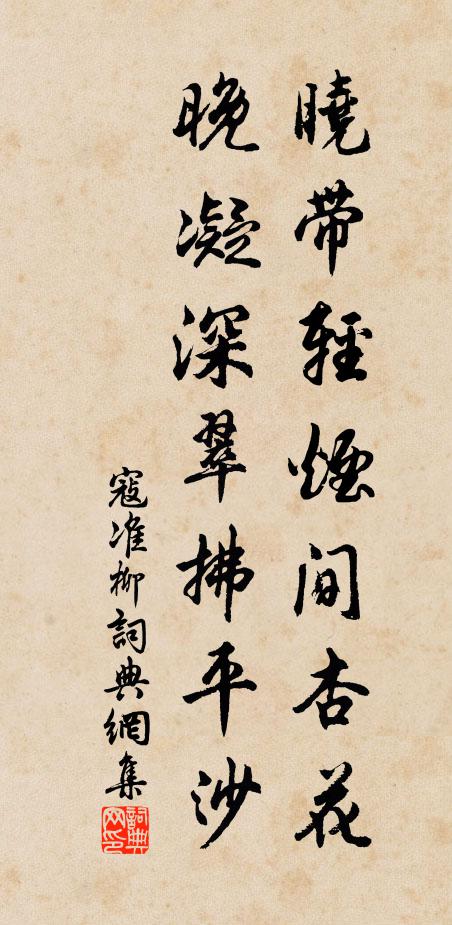 曉帶輕煙間杏花
晚凝深翠拂平沙
寇准柳詞典網集
詞典網印